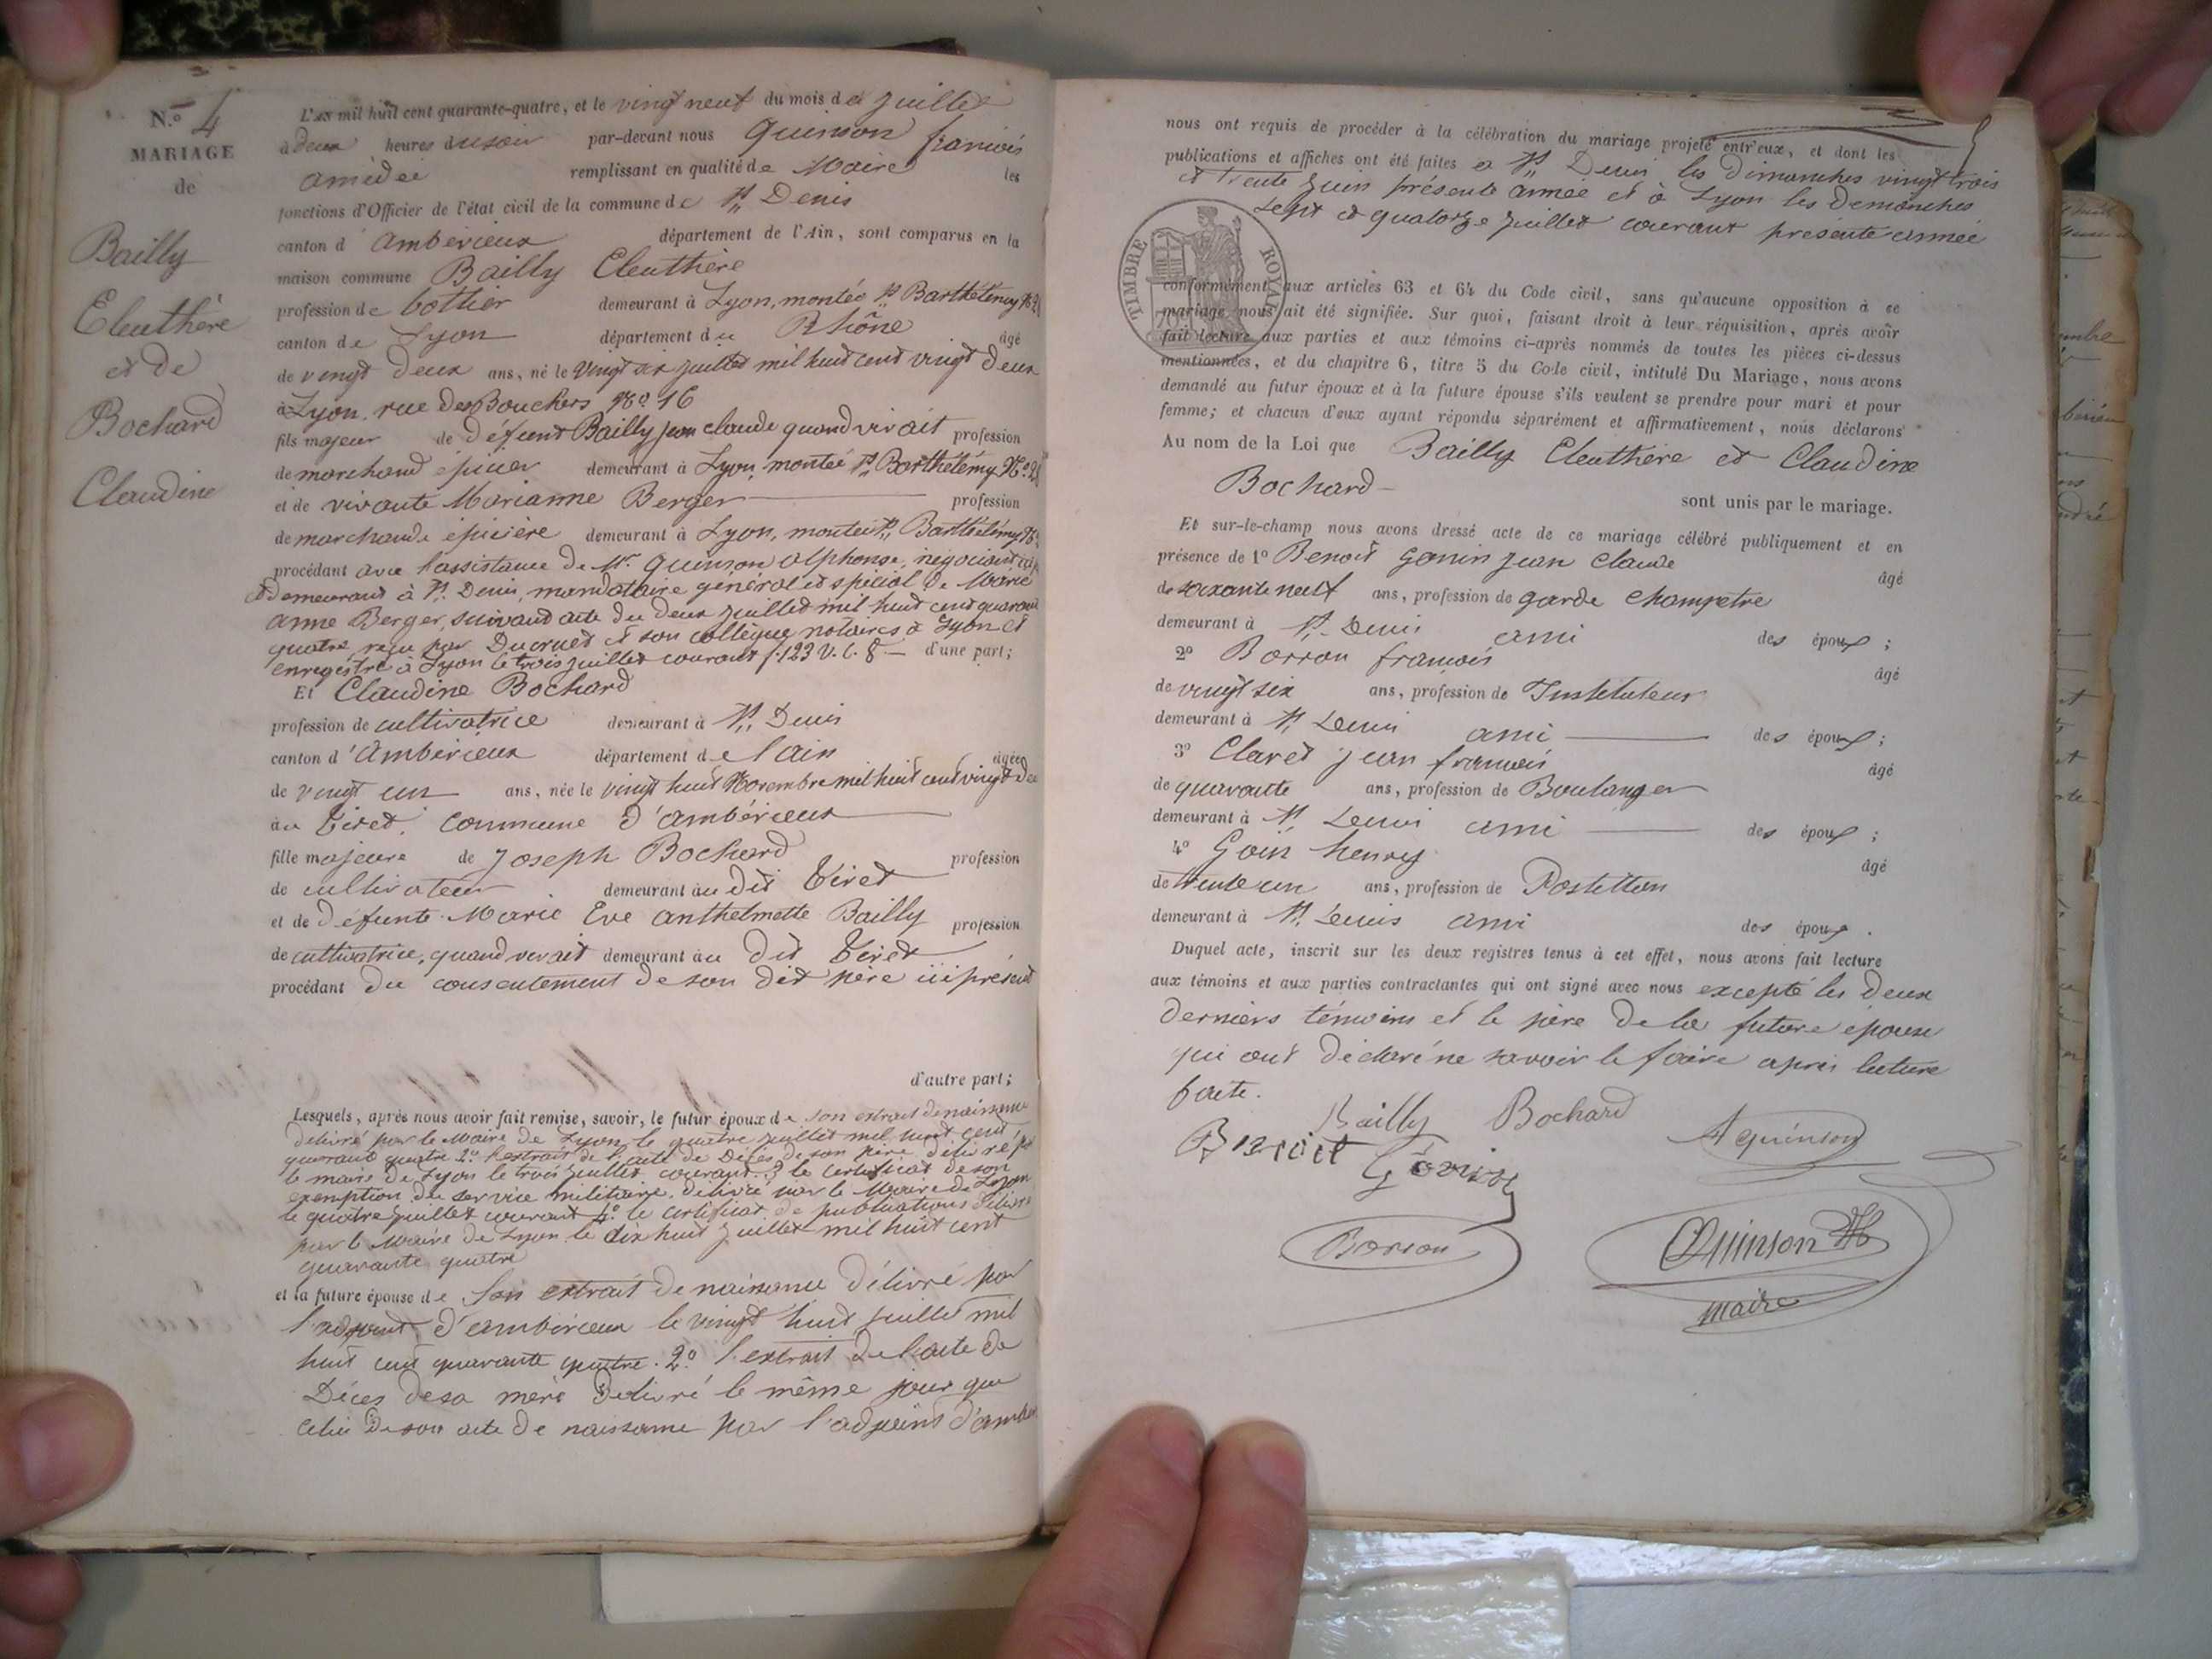 N.º 4
MARIAGE
de
Bailly
Eleuthère
et de
Bochard
Claudine
L'an mil huit cent quarante-quatre, et le vingt neuf du mois de juillet
à deux heures du soir par-devant nous Quinson françois
amédée remplissant en qualité de Maire les
fonctions d'Officier de l'état civil de la commune de St Denis
canton d'ambérieux département de l'Ain, sont comparus en la
maison commune Bailly Eleuthère
profession de bottier demeurant à Lyon, montée St Barthélemy No 2
canton de Lyon département du Rhône âgé
de vingt deux ans, né le vingt six juillet mil huit cent vingt deux
à Lyon, rue des Bouchers No 16
fils majeur de défunt Bailly jean claude quand vivait profession
de marchand épicier demeurant à Lyon, montée St Barthélémy No 2
et de vivante Marianne Berger profession
de marchande épicière demeurant à Lyon, montée St Barthélémy No
procédant avec l'assistance de Mr Quinson Alphonse, négociant
et demeurant à St Denis, mandataire général et spécial de Marie
anne Berger, suivant acte du deux juillet mil huit cent quarante
quatre reçu par Ducruet et son collègue notaires à Lyon et
enregistré à Lyon le trois juillet courant f. 123 V. C. 8 d'une part;
Et Claudine Bochard
profession de cultivatrice demeurant à St Denis
canton d'Ambérieux département de l'ain âgée
de vingt un ans, née le vingt huit Novembre mil huit cent vingt deux
au Tiret, commune d'ambérieux
fille majeure de Joseph Bochard profession
de cultivateur demeurant au dit Tiret
et de défunte Marie Eve anthelmette Bailly profession
de cultivatrice, quand vivait demeurant au dit Tiret
procédant du consentement de son dit père ici présent
d'autre part;
Lesquels, après nous avoir fait remise, savoir, le futur époux de son extrait de naissance
délivré par le Maire de Lyon le quatre juillet mil huit cent
quarante quatre 2º l'extrait de l'acte de Décès de son père délivré par
le maire de Lyon le trois juillet courant 3º le certificat de son
exemption du service militaire délivré par le Maire de Lyon
le quatre juillet courant 4º le certificat de publications délivré
par le Maire de Lyon le dix huit juillet mil huit cent
quarante quatre
et la future épouse de son extrait de naissance délivré par
l'adjoint d'ambérieux le vingt huit juillet mil
huit cent quarante quatre. 2º l'extrait de l'acte de
Décès de sa mère délivré le même jour que
celui de son acte de naissance par l'adjoint d'ambér
nous ont requis de procéder à la célébration du mariage projeté entr'eux, et dont les
publications et affiches ont été faites à St Denis les dimanches vingt trois
et trente juin présente année et à Lyon les demanches
sept et quatorze juillet courant présente année
TIMBRE ROYAL
conformément aux articles 63 et 64 du Code civil, sans qu'aucune opposition à ce
mariage nous ait été signifiée. Sur quoi, faisant droit à leur réquisition, après avoir
fait lecture aux parties et aux témoins ci-après nommés de toutes les pièces ci-dessus
mentionnées, et du chapitre 6, titre 5 du Code civil, intitulé Du Mariage, nous avons
demandé au futur époux et à la future épouse s'ils veulent se prendre pour mari et pour
femme; et chacun d'eux ayant répondu séparément et affirmativement, nous déclarons
Au nom de la Loi que Bailly Eleuthère et Claudine
Bochard sont unis par le mariage.
Et sur-le-champ nous avons dressé acte de ce mariage célébré publiquement et en
présence de 1º Benoit Gonin jean claude âgé
de soixante neuf ans, profession de garde champetre
demeurant à St Denis ami des époux;
2º Borron françois âgé
de vingt six ans, profession de Instituteur
demeurant à St Denis ami des époux;
3º Claret jean françois âgé
de quarante ans, profession de Boulanger
demeurant à St Denis ami des époux;
4º Goin henry âgé
de trente un ans, profession de Postillon
demeurant à St Denis ami des époux.
Duquel acte, inscrit sur les deux registres tenus à cet effet, nous avons fait lecture
aux témoins et aux parties contractantes qui ont signé avec nous excepté les deux
derniers témoins et le père de la future épouse
qui ont déclaré ne savoir le faire après lecture
faite.
Bailly Bochard A quinson
Benoit Gonin
Borron Quinson
maire